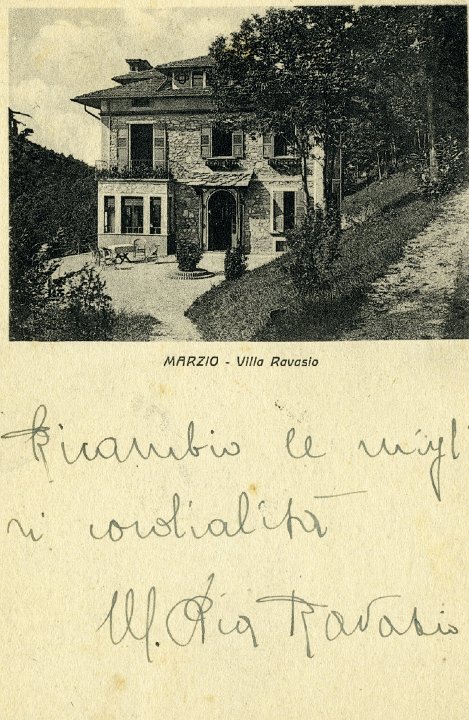 MARZIO - Villa Ravasio
Ricambio le migl
ri cordialità
M. Pia Ravasio